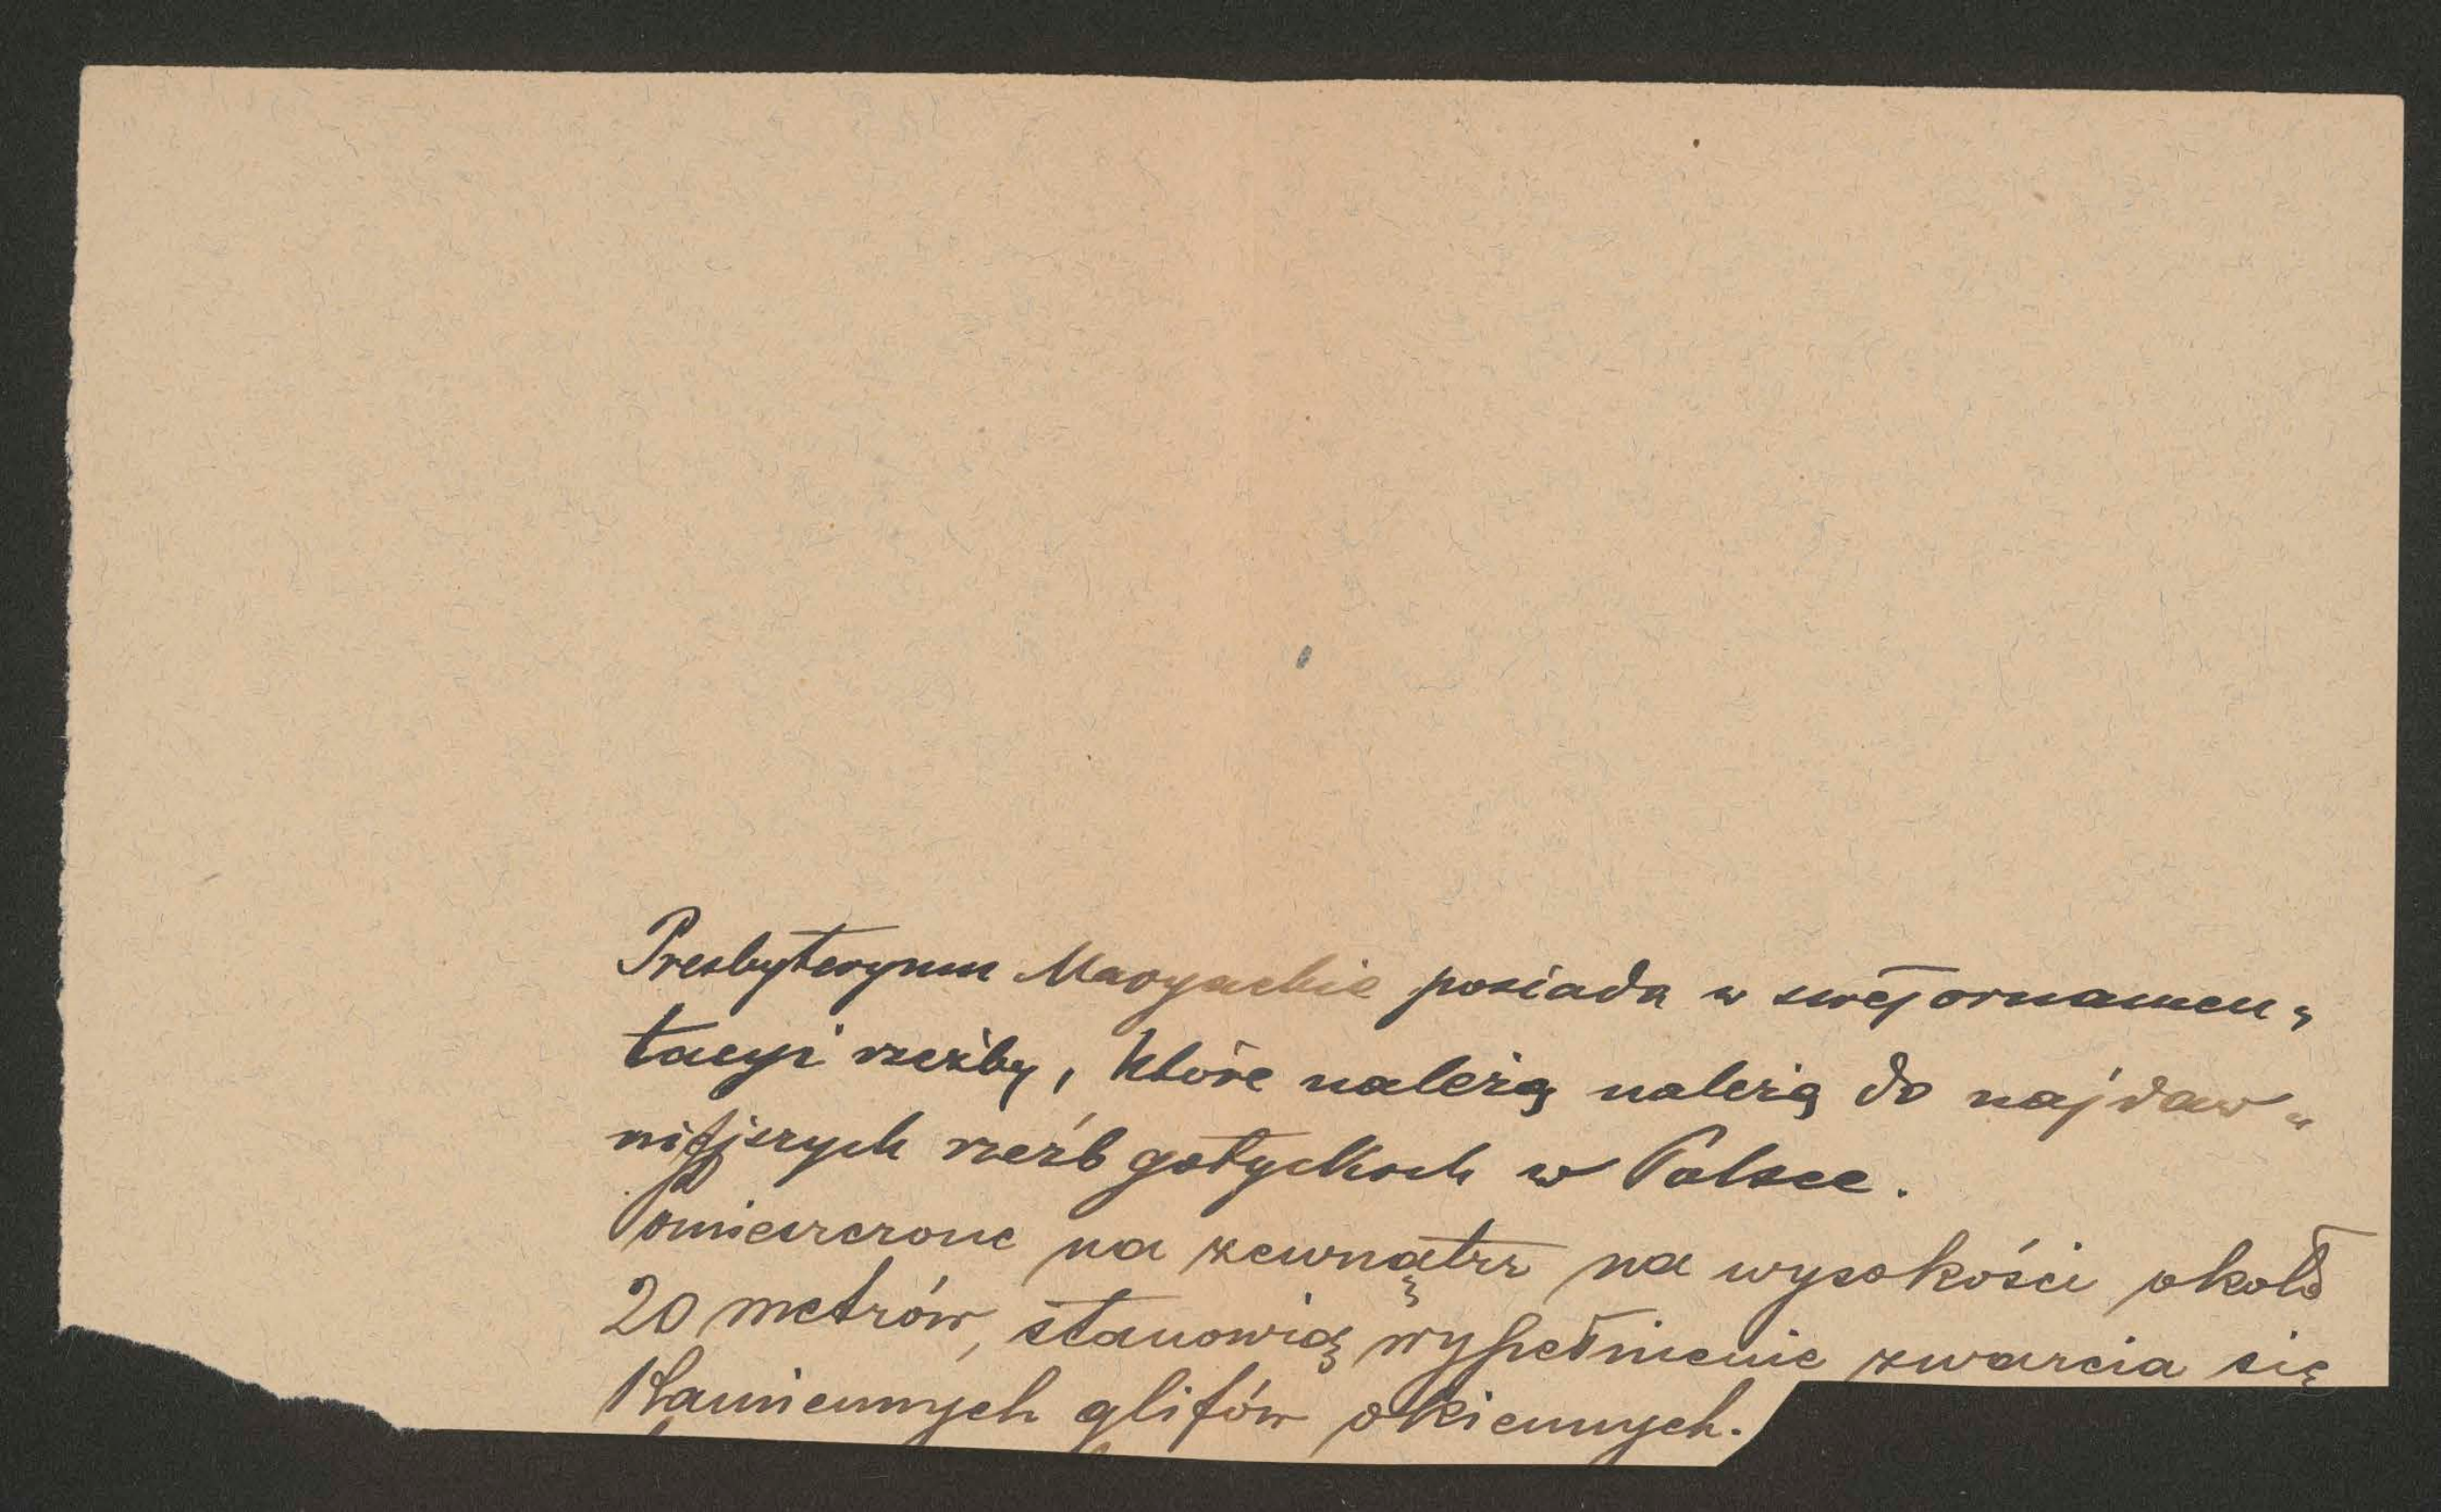 Presbyteryum Maryackie posiada w swej ornamen„
tacyi rzeźby, które należą należą do najdaw„
niejszych rzeźb gotyckich w Polsce.
Pomieszczone na zewnątrz na wysokości około
20 metrów, stanowią wypełnienie zwarcia się
Kamiennych glifów okiennych.